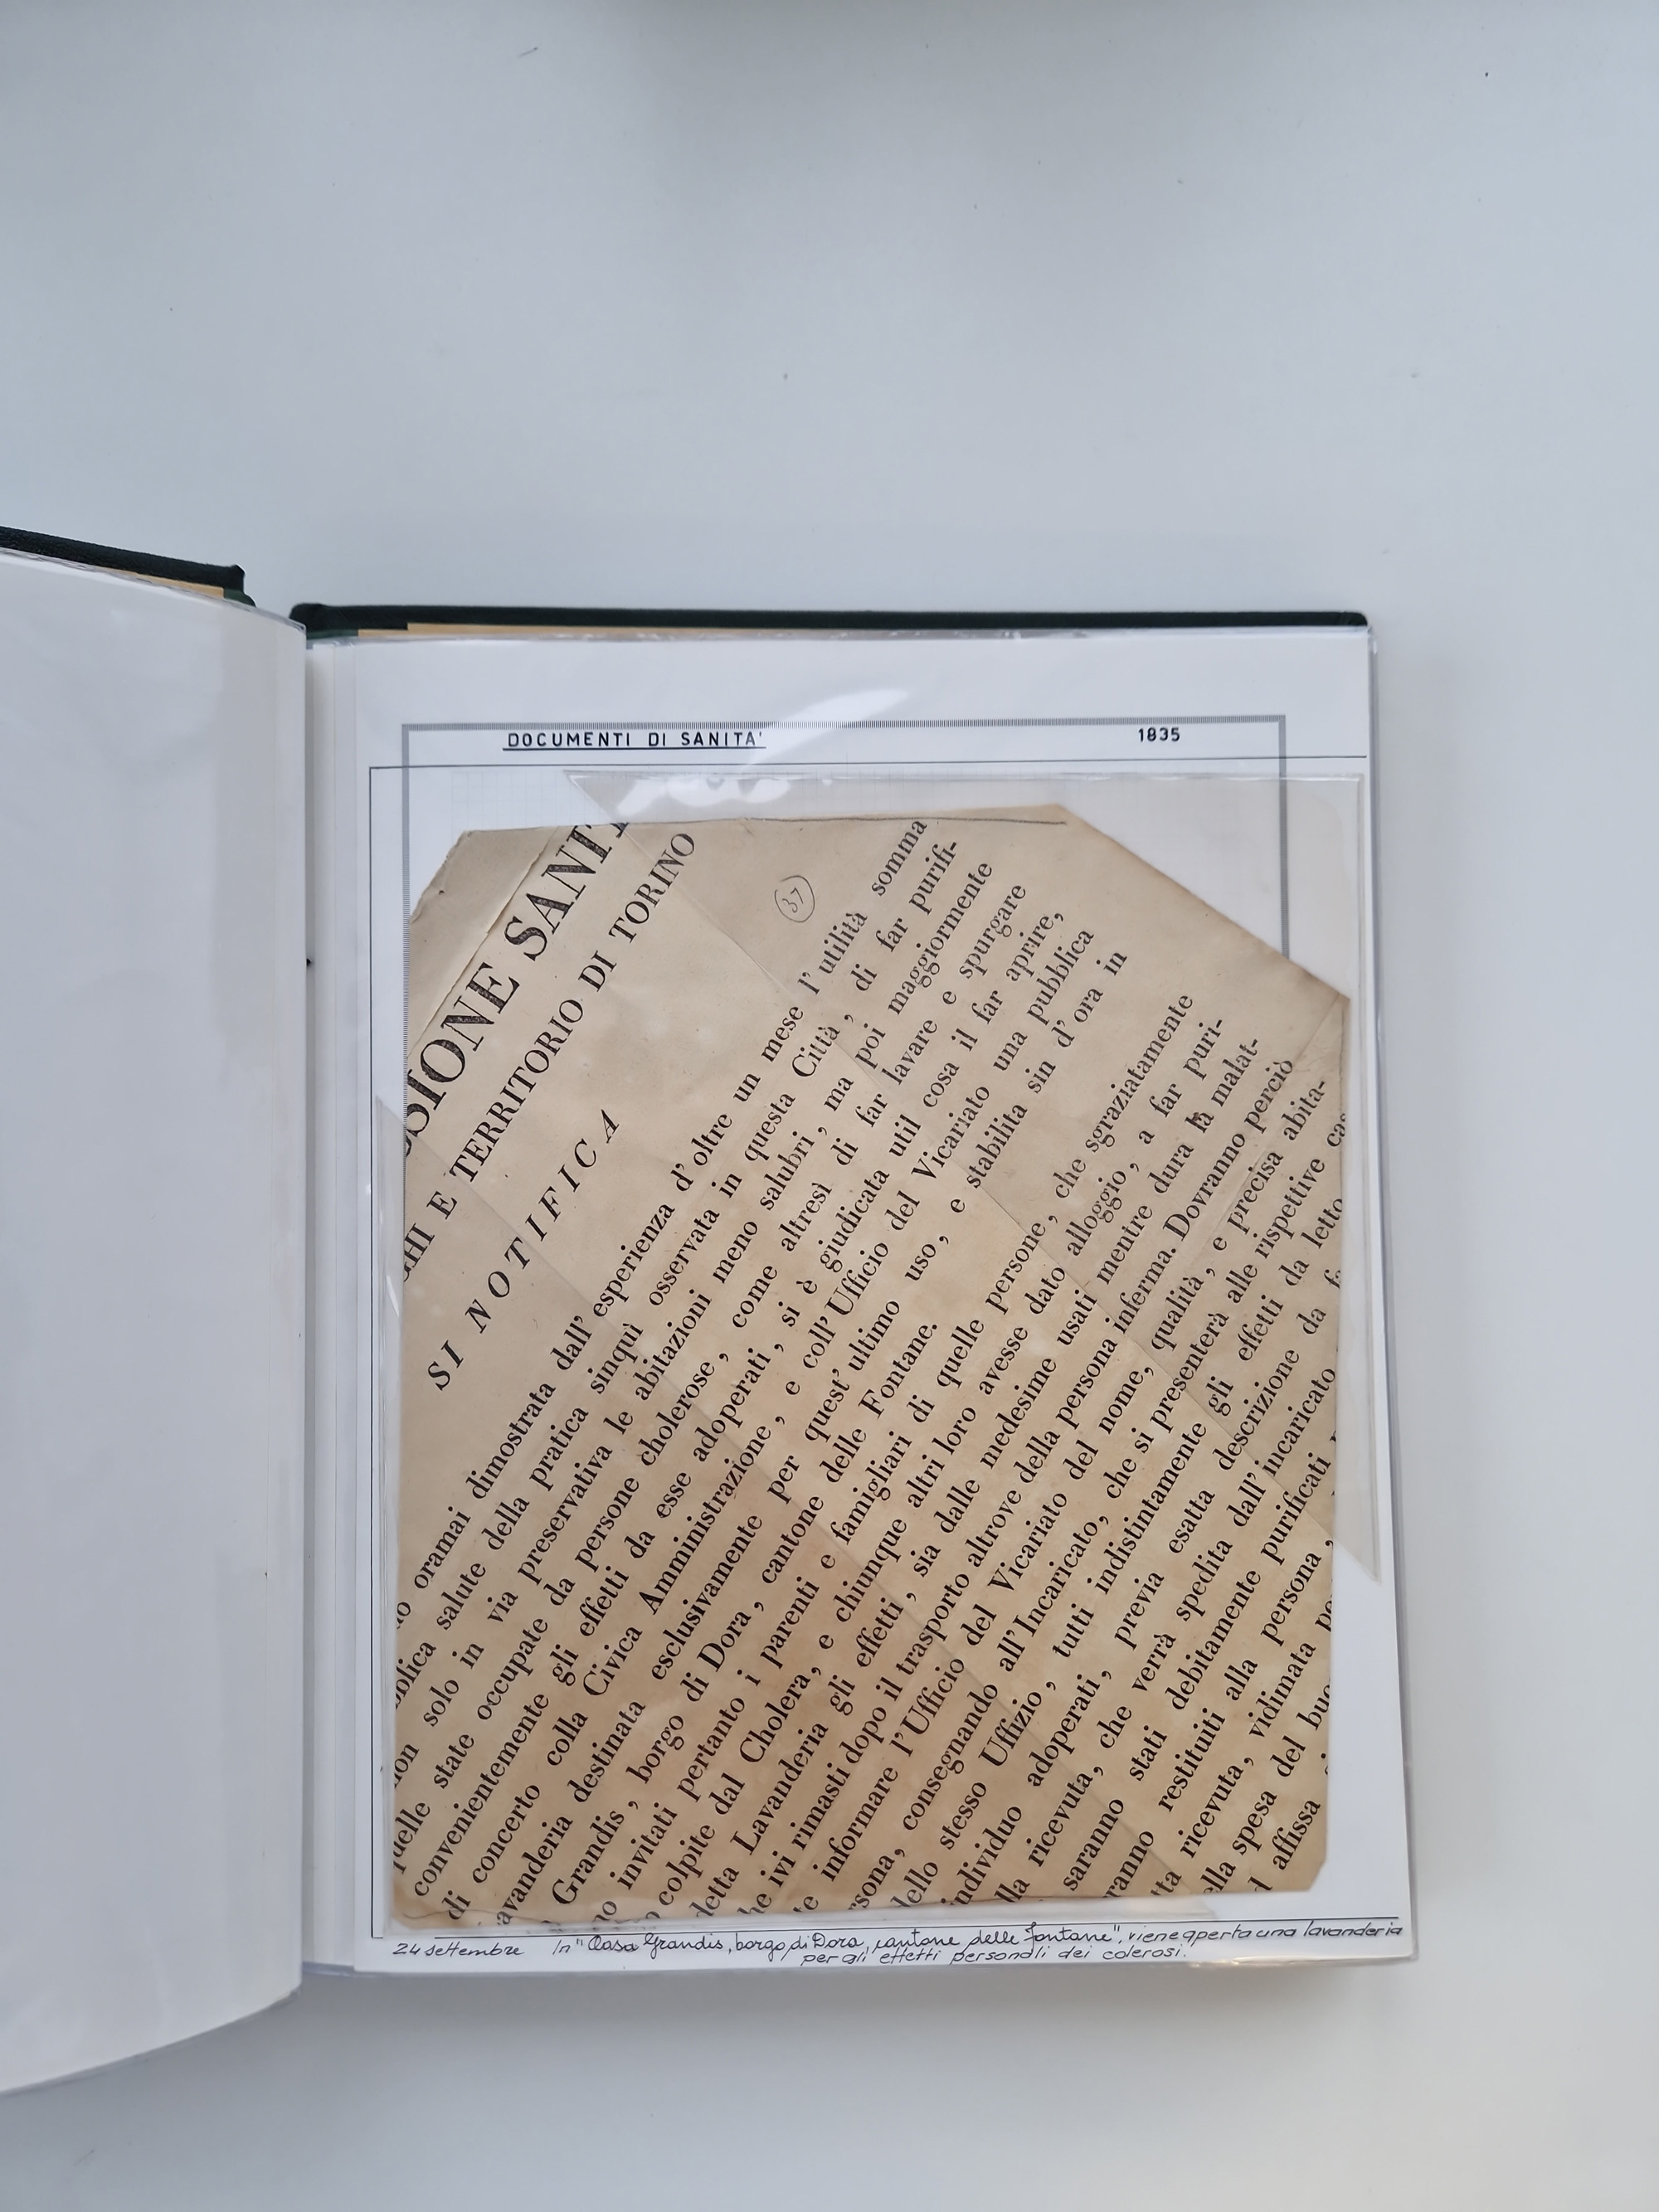 DOCUMENTI DI SANITA'
1835
SIONE SANIT
GHI E TERRITORIO DI TORINO
37
SI NOTIFICA
oramai dimostrata dall' esperienza d' oltre un mese l' utilità somma
blica salute della pratica sinquì osservata in questa Città, di far purifi-
non solo in via preservativa le abitazioni meno salubri, ma poi maggiormente
quelle state occupate da persone cholerose, come altresì di far lavare e spurgare
convenientemente gli effetti da esse adoperati, si è giudicata util cosa il far aprire,
di concerto colla Civica Amministrazione, e coll' Ufficio del Vicariato una pubblica
avanderia destinata esclusivamente per quest' ultimo uso, e stabilita sin d' ora in
Grandis, borgo di Dora, cantone delle Fontane.
no invitati pertanto i parenti e famigliari di quelle persone, che sgraziatamente
colpite dal Cholera, e chiunque altri loro avesse dato alloggio, a far puri-
detta Lavanderia gli effetti, sia dalle medesime usati mentre dura la malat-
he ivi rimasti dopo il trasporto altrove della persona inferma. Dovranno perciò
te informare l' Ufficio del Vicariato del nome, qualità, e precisa abita-
rsona, consegnando all' Incaricato, che si presenterà alle rispettive cas
dello stesso Uffizio, tutti indistintamente gli effetti da letto
individuo adoperati, previa esatta descrizione da fa
lla ricevuta, che verrà spedita dall' incaricato
saranno stati debitamente purificati
ranno restituiti alla persona,
tta ricevuta, vidimata pe
ella spesa del buc
d affissa
24 settembre In "Casa Grandis, borgo di Dora, cantone delle Fontane", viene aperta una lavanderia
per gli effetti personali dei colerosi.